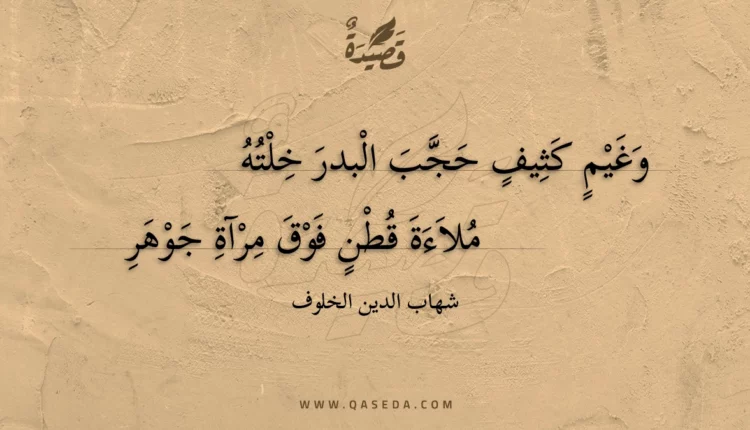 قَصِيدَةٌ
وَغَيْمٍ كَثِيفٍ حَجَّبَ الْبدرَ خِلْتُهُ
مُلاَءَةَ قُطْنٍ فَوْقَ مِرْآةِ جَوْهَرِ
شهاب الدين الخلوف
WWW.QASEDA.COM